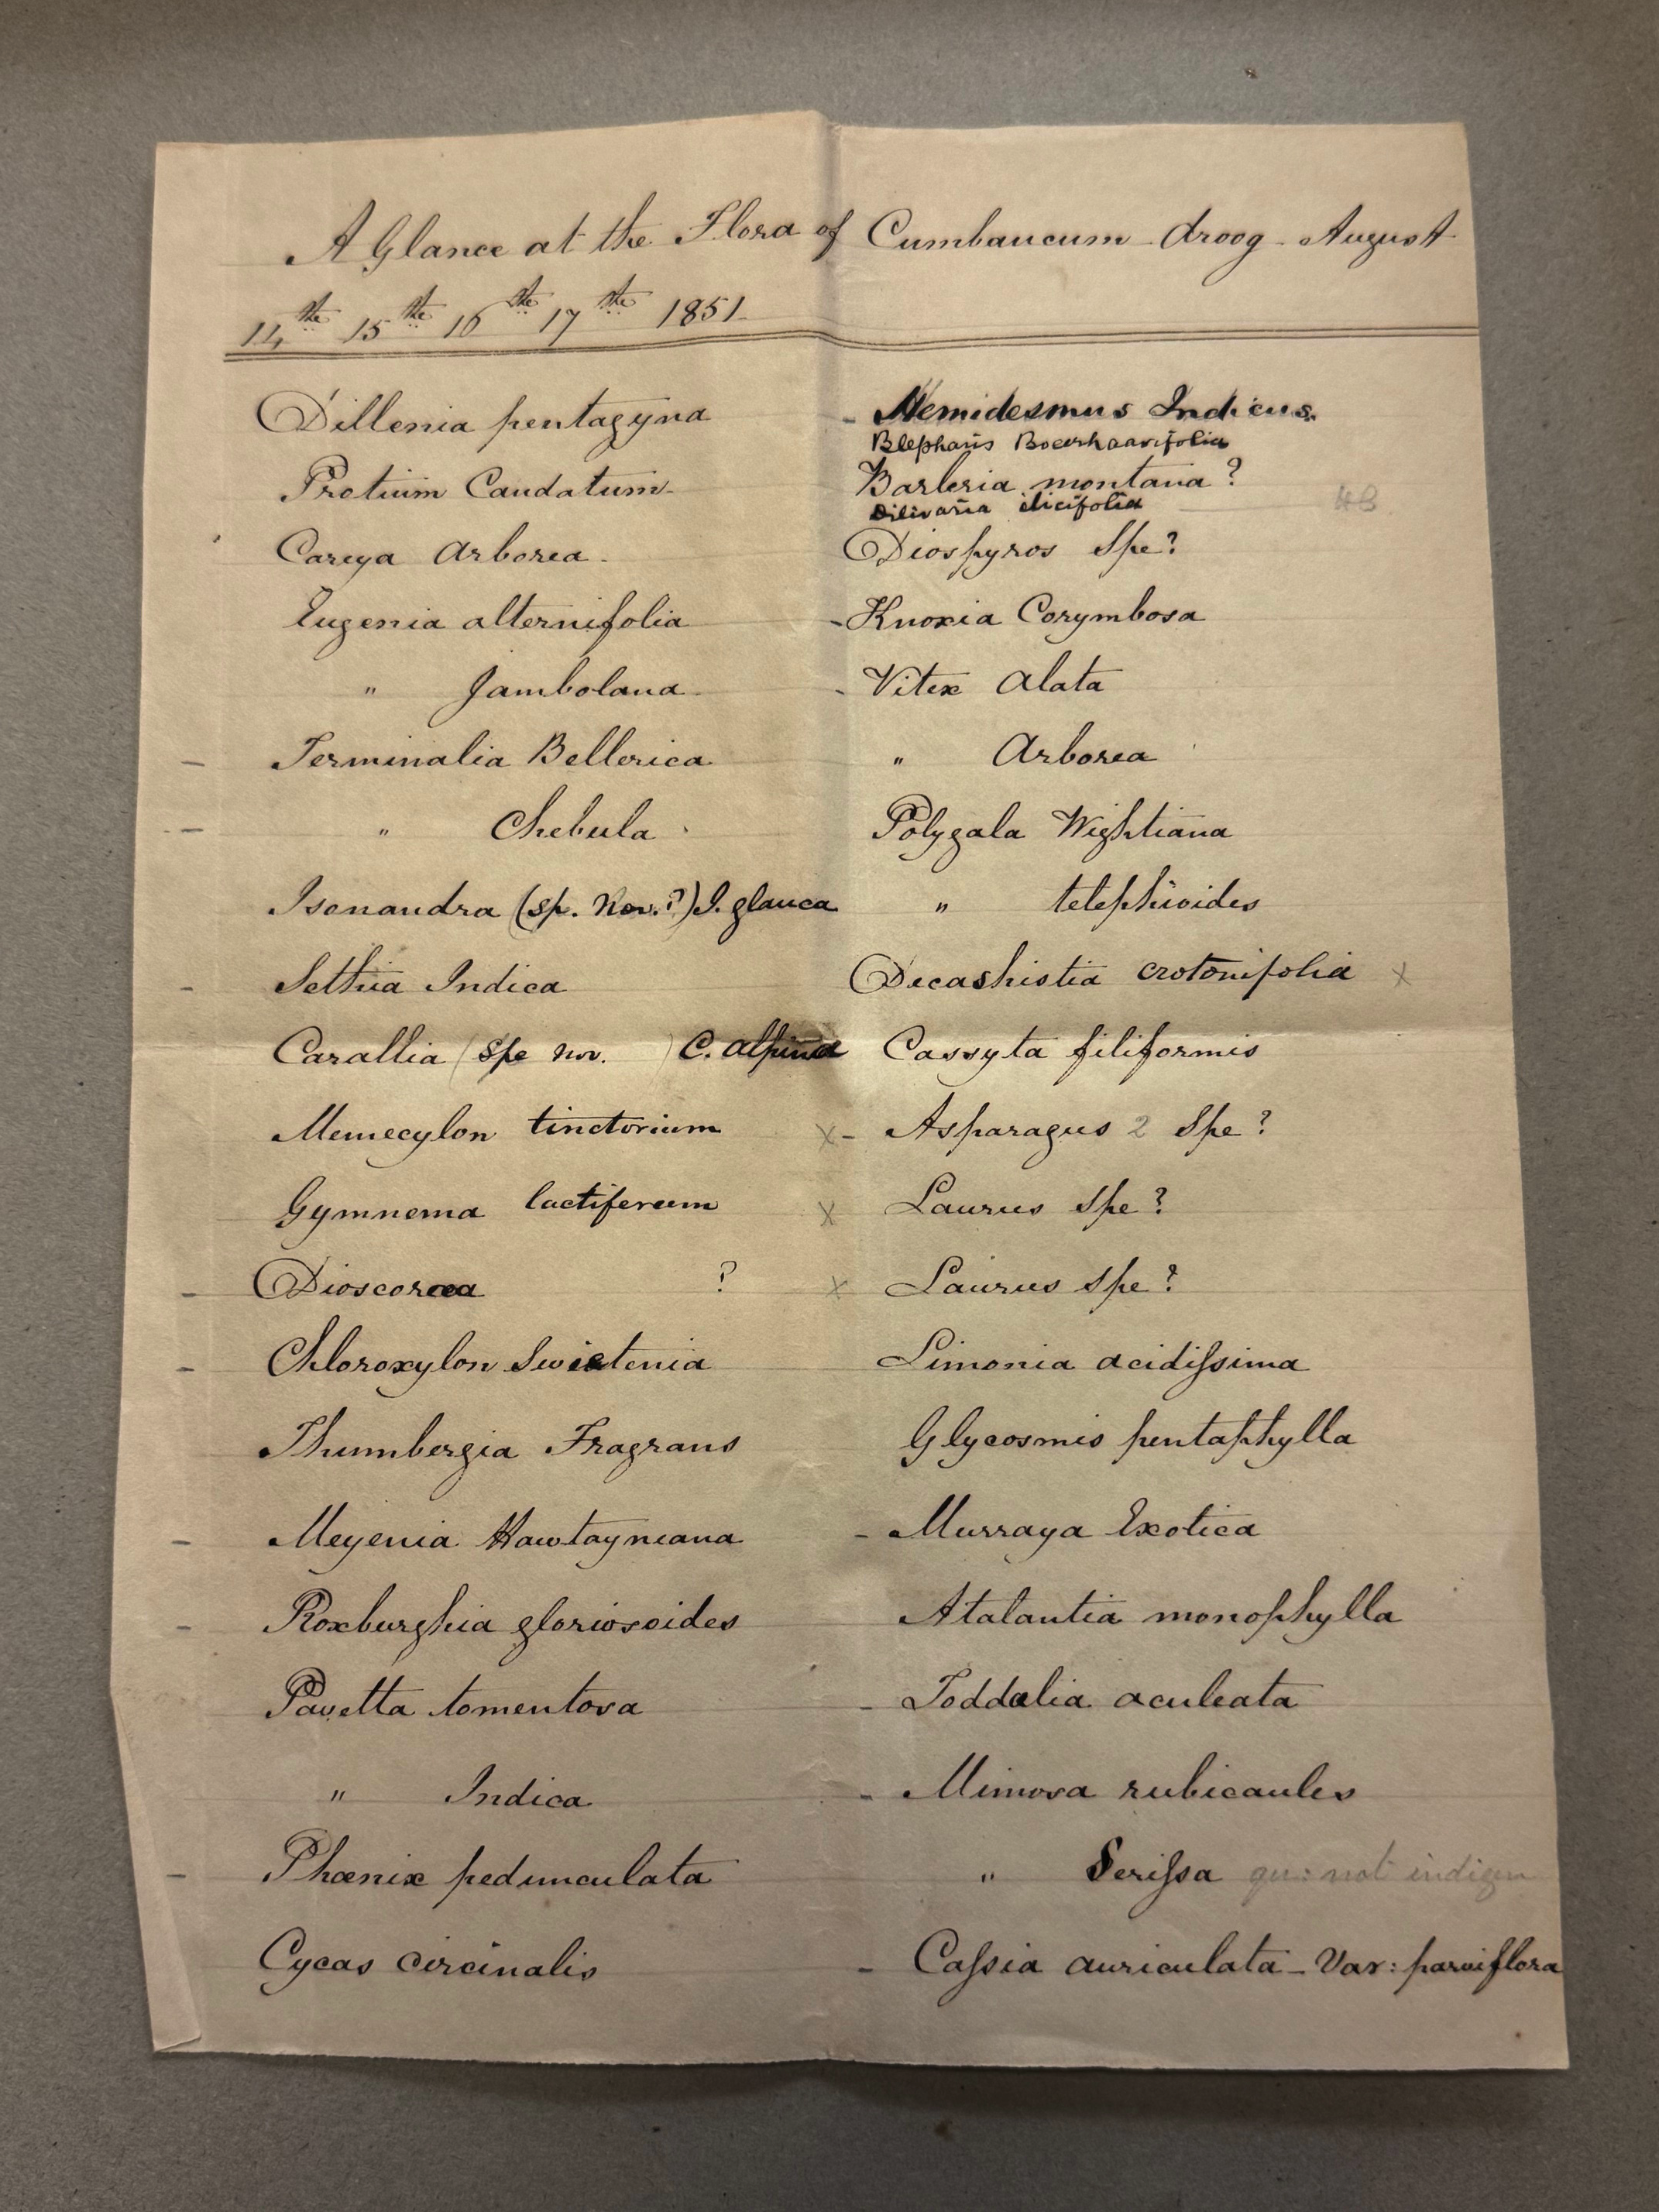 A Glance at the Flora of Cumbaucum droog - August
14th 15th 16th 17th 1851
Dillenia pentagyna
Protium Caudatum
Careya Arborea
Eugenia alternifolia
" Jambolana
– Terminalia Bellerica
– " Chebula
Isonandra (sp. Nov.?) I. glauca
– Sethia Indica
Carallia (Spe nov. ) C. alpina
Memecylon tinctorium
Gymnema lactiferum
– Dioscorea ?
– Chloroxylon Swietenia
Thumbergia Fragrans
– Meyenia Hawtayneana
– Roxburghia gloriosoides
Pavetta tomentosa
" Indica
– Phœnix pedunculata
Cycas circinalis
– Hemidesmus Indicus.
Blepharis Boerhaavifolia
Barleria montana ?
Dilivaria ilicifolia
Diospyros Spe?
– Knoxia Corymbosa
- Vitex Alata
" Arborea
Polygala Wightiana
" telephioides
Decashistia crotonifolia x
Cassyta filiformis
x - Asparagus 2 Spe?
x Laurus Spe?
x Laurus Spe?
Limonia acidissima
Glycosmis pentaphylla
– Murraya Exotica
Atalantia monophylla
– Toddalia aculeata
– Mimosa rubicaules
" Serissa qu: not indigen
– Cassia auriculata – Var: parviflora